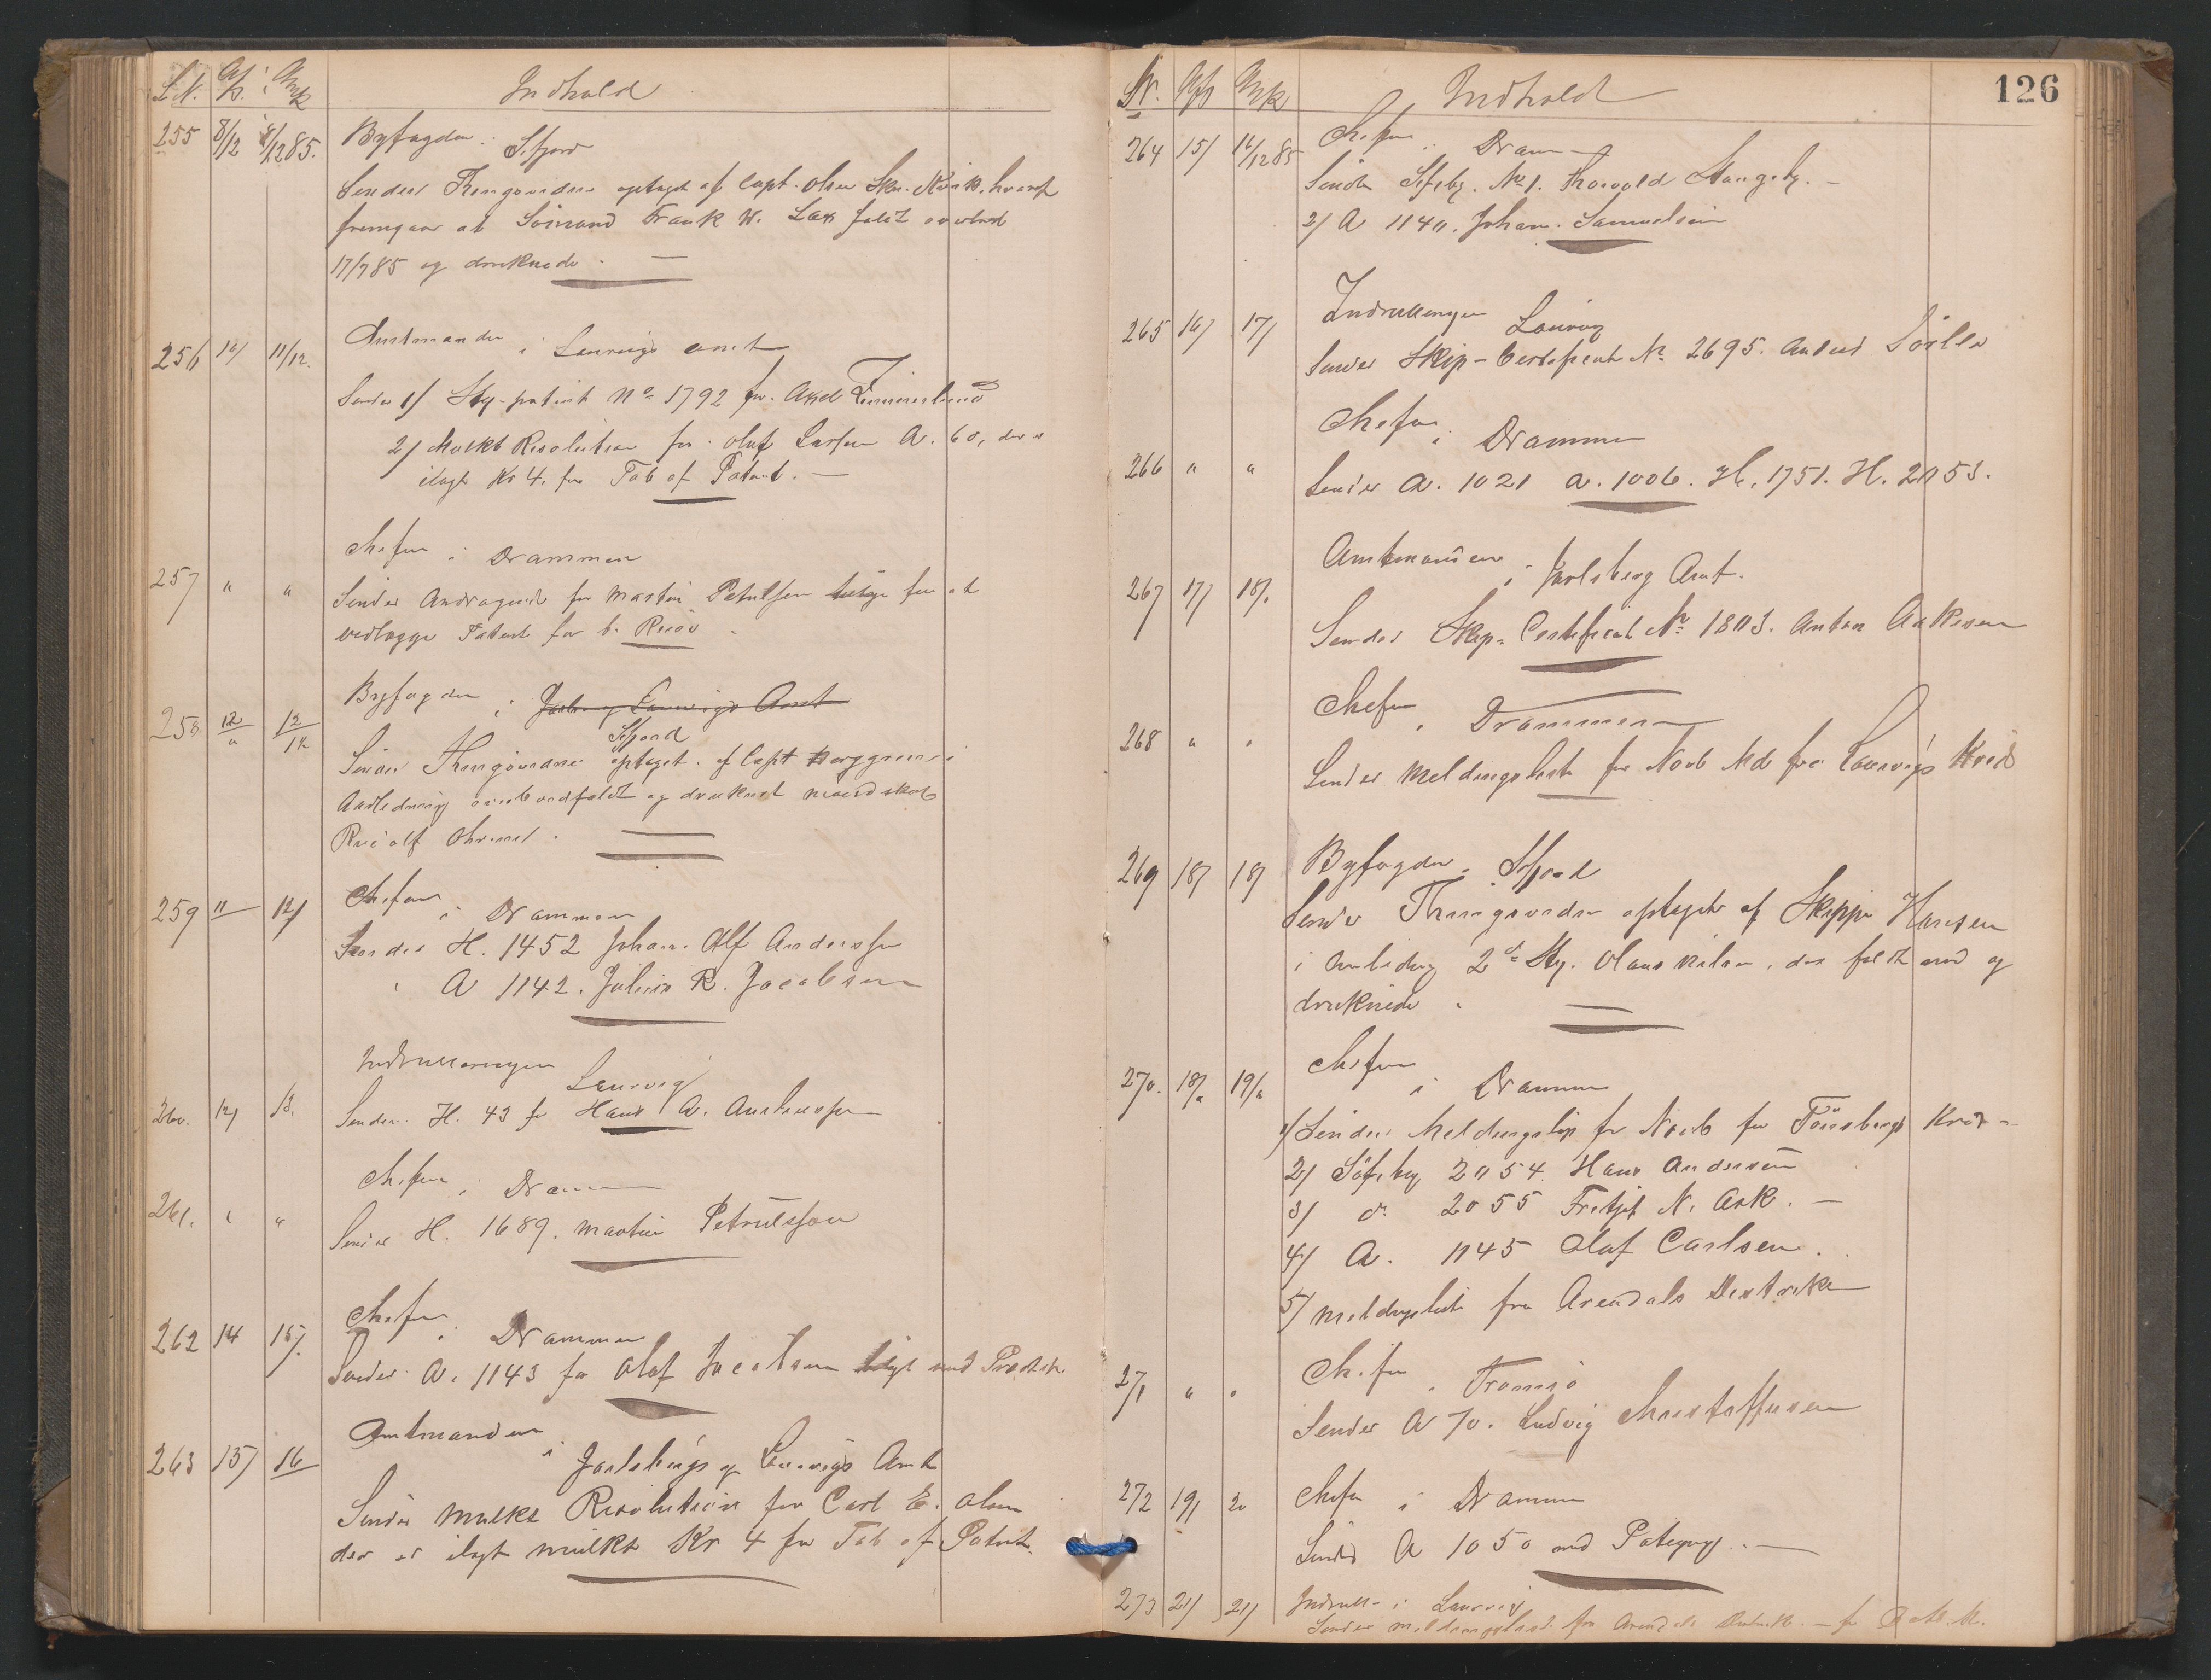 L.N. Afs. Mk Indhold
255 8/12 8/1285. Byfogden i Sfjord
Sender Thingsvidne optaget af Capt. Olsen Skr. hvoraf
fremgaar at Sømand Frank W. Lax faldt overbord
17/785 og druknede. —
256 10/ 11/12. Amtmanden i Laurvigs amt
Sender 1/ Sty-patent No 1792 for Axel
2/ Mulkt Resolution for Oluf Larsen A. 60, der er
ilagt Kr 4. for Tab af Patent. —
257 " " Chefen i Drammen
Sender Andragende fra Martin Petrelsen for at
vedlægge Patent for b. Risør
258 12/" 12/12 Byfogden i Jarls og Laurvigs Amt
Sfjord
Sender Thingsvidne optaget af Capt i
Anledning overbordfaldt og druknet
259 11 12/ Chefen i Drammen
Sender H. 1452 Johan Alf Anderssen
" A 1142. Julius R. Jacobsen
Indrulleringen Laurvig
260. 12/ 13. Sender H. 43 for Hans A.
261. " " Chefen i Drammen
Sender H. 1689. Martin Petrulssen
262 14 15/. Chefen i Drammen
Sender A. 1143 for Olaf Jacobsen med
263 15/ 16 Amtmanden i Jarlsbergs og Laurvigs Amt
Sender mulkt Resolution for Carl E. Olsen
der er ilagt mulkt Kr 4 for Tab af Patent.
126
LN. Afs Mk Indhold
264 15/ 16/1285 Chefen i Drammen
Sender Søfsbg. No 1. Thorvald
2/ A 1140. Johan Samuelsen
265 16/ 17/ Indrulleringen Laurvig
Sender Skip-Certificat No 2695.
266 " " Chefen i Drammen
Sender A. 1021 A. 1006. H. 1751. H. 2053.
267 17/ 18/. Amtmanden i Jarlsberg Amt.
Sender Skip-Certificat No 1803. Anton
268 " " Chefen i Drammen
Sender Meldingsliste for Novb Md fra Laurvigs Kreds
269 18/ 18/ Byfogden i Sfjord
Sender Thingsvidne optaget af Skipper Hansen
i Anledning 2d Sty. Olaus Nilsen, der faldt ned og
druknede.
270. 18/" 19/" Chefen i Drammen
1/ Sender Meldingslist for Novb fra Tönsbergs Kreds
2/ Söfsbg 2054. Hans Andersen
3/ do 2055 Fretjof N. Ask. —
4/ A. 1145 Olaf Carlsen.
5/ meldingsliste fra Arendals Distrikt
271 " " Chefen i Tromsø
Sender A 70. Ludvig Christoffersen
272 19/ 20 Chefen i Drammen
Sender A 1050 med Pategng. —
273 21/ 21/ Indrull- i Laurvig
Sender meldingsliste fra Arendals Distrik. — for